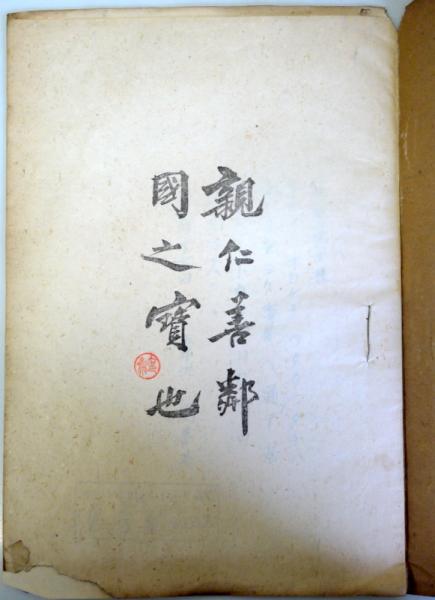 親仁善鄰
國之寶也